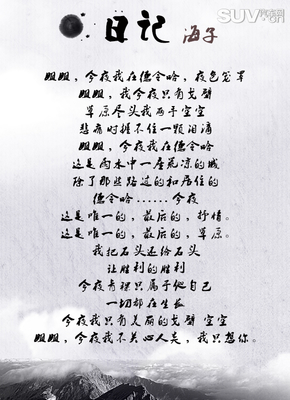 日记
海子
姐姐，今夜我在德令哈，夜色笼罩
姐姐，我今夜只有戈壁
草原尽头我两手空空
悲痛时握不住一颗泪滴
姐姐，今夜我在德令哈
这是雨水中一座荒凉的城
除了那些路过的和居住的
德令哈......今夜
这是唯一的，最后的，抒情。
这是唯一的，最后的，草原。
我把石头还给石头
让胜利的胜利
今夜青稞只属于他自己
一切都在生长
今夜我只有美丽的戈壁 空空
姐姐，今夜我不关心人类，我只想你。